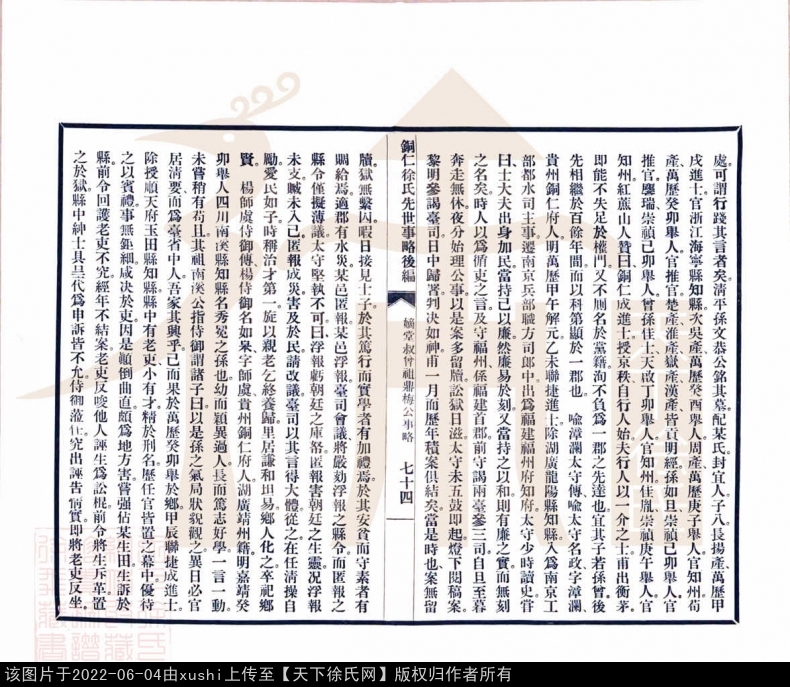 處可謂行踐其言者矣清平孫文恭公銘其墓配某氏封宜人子八長揚產萬歷甲
戌進士官浙江海寧縣知縣次吳產萬歷癸酉舉人周產萬歷庚子舉人官知州荀
產萬歷癸卯舉人官推官楚產淮產嶽產漢產皆貢明經孫如旦崇禎己卯舉人官
推官龔瑞崇禎己卯舉人曾孫佳士天啟丁卯舉人官知州佳胤崇禎庚午舉人官
知州紅蕉山人贊曰銅仁成進士授京秩自行人始夫行人以一介之士甫出衡茅
即能不失足於權門又不厠名於黨籍洵不負為一郡之先達也宜其子若孫曾後
先相繼於百餘年間而以科第顯於一郡也 喩漳瀾太守傳喩太守名政字漳瀾
貴州銅仁府人明萬歷甲午解元乙未聯捷進士除湖廣龍陽縣知縣入為南京工
部都水司主事遷南京兵部職方司郎中出為福建福州府知府太守少時讀史嘗
曰士大夫出身加民當持己以廉然廉易於刻又當持之以和則有廉之實而無刻
之名矣時人以為循吏之言及守福州係福建首郡前守謁兩臺參三司自旦至暮
奔走無休夜分始理公事以是案多留牘訟獄日滋太守未五鼓即起燈下閱稿案
黎明參謁臺司日中歸署判决如神甫一月而歷年積案俱結矣當是時也案無留
銅仁徐氏先世事略後編
嬪堂叔曾祖鼎梅公事略
七十四
牘獄無繫囚暇日接見士子於其篤行而實學者有加禮焉於其安貧而守素者有
賙給焉適郡有水災某邑匿報某邑浮報臺司會議將嚴劾浮報之縣令而匿報之
縣令僅擬薄議太守堅執不可曰浮報虧朝廷之庫帑匿報害朝廷之生靈况浮報
未支贓未入己匿報成災害及於民請改議臺司以其言得大體從之在任清操自
勵愛民如子時稱治才第一旋以親老乞終養歸里居謙和坦易鄉人化之卒祀鄉
賢 楊師虞侍御傳楊侍御名如臯字師虞貴州銅仁府人湖廣靖州籍明嘉靖癸
卯舉人四川南溪縣知縣名秀冕之孫也幼而穎異過人長而篤志好學一言一動
未嘗稍有苟且其祖南溪公指侍御謂諸子曰以是孫之氣局狀貌觀之異日必官
居清要而為臺省中人吾家其興乎已而果於萬歷癸卯舉於鄉甲辰聯捷成進士
除授順天府玉田縣知縣縣中有老吏小有才精於刑名歷任官皆置之幕中優待
之以賓禮事無鉅細咸决於吏因是顚倒曲直頗為地方害嘗強佔某生田生訴於
縣前令回護老吏不究經年不結案老吏反唆他人誣生為訟棍前令將生斥革置
之於獄縣中紳士具呈代為申訴皆不允侍御蒞任究出誣告情實即將老吏反坐
该图片于2022-06-04由xushi上传至【天下徐氏网】版权归作者所有